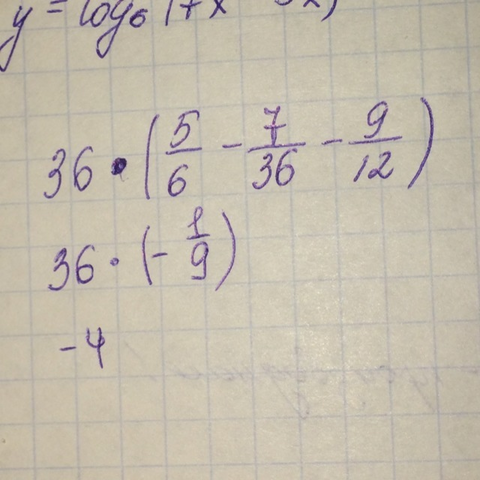 y = log₆ (7x
36 • (5/6 − 7/36 − 9/12)
36 · (− 1/9)
−4